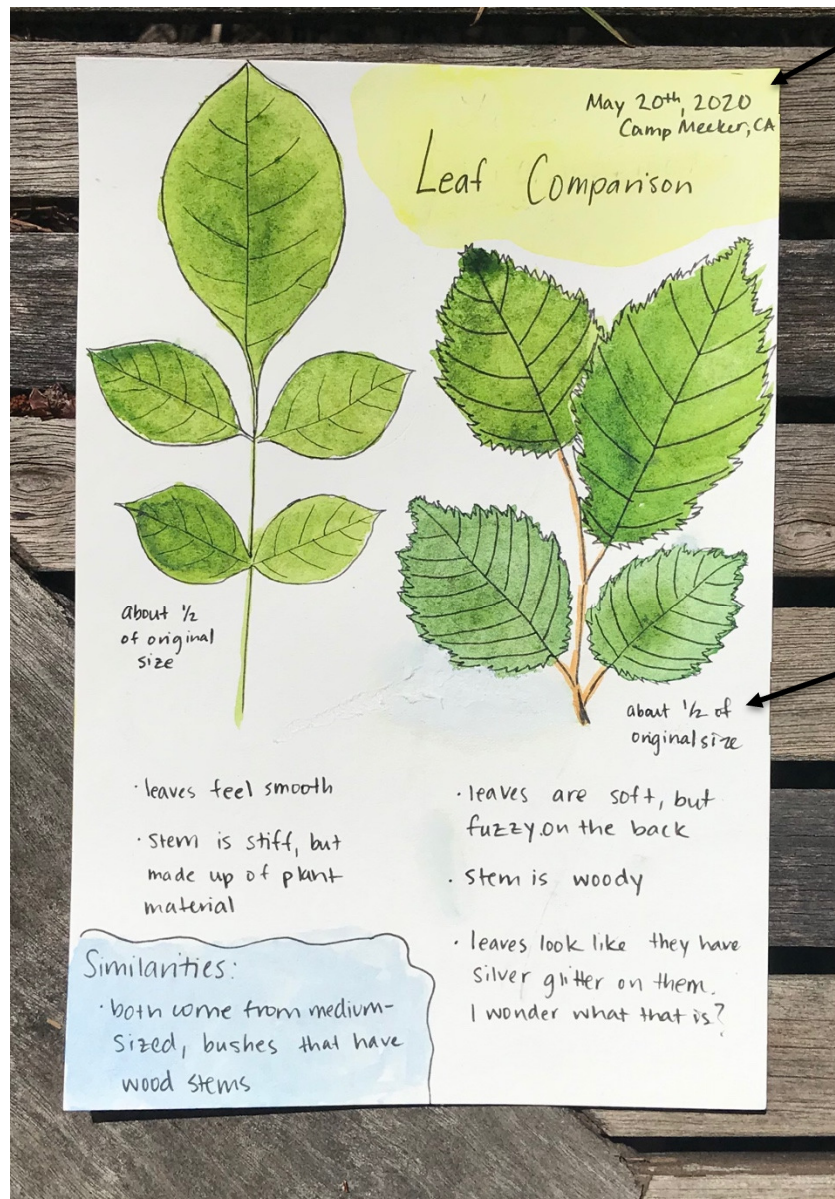 May 20th, 2020
Camp Meeker, CA
Leaf Comparison
about 1/2
of original
size
about 1/2 of
original size
· leaves feel smooth
· stem is stiff, but
made up of plant
material
· leaves are soft, but
fuzzy on the back
· stem is woody
· leaves look like they have
silver glitter on them.
I wonder what that is?
Similarities:
· both come from medium-
sized, bushes that have
wood stems